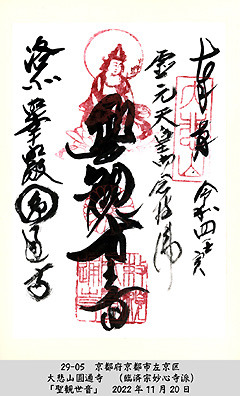 十一月廿日 令和四年
霊元天皇御念持佛
聖観世音
洛北 華巌 圓通寺
29-05 京都府京都市左京区
大悲山圓通寺 （臨済宗妙心寺派）
「聖観世音」 2022年11月20日